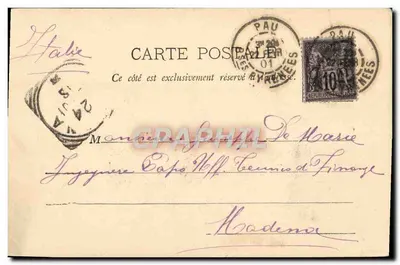 Italie
CARTE POSTALE
PAU
01
Bses PYRENEES
PAU
PYRENEES
10
Ce côté est exclusivement réservé
24
Monsieur Joseph De Marie
Ingegnere Capo Uff. Tecnico di Finanze
Modena